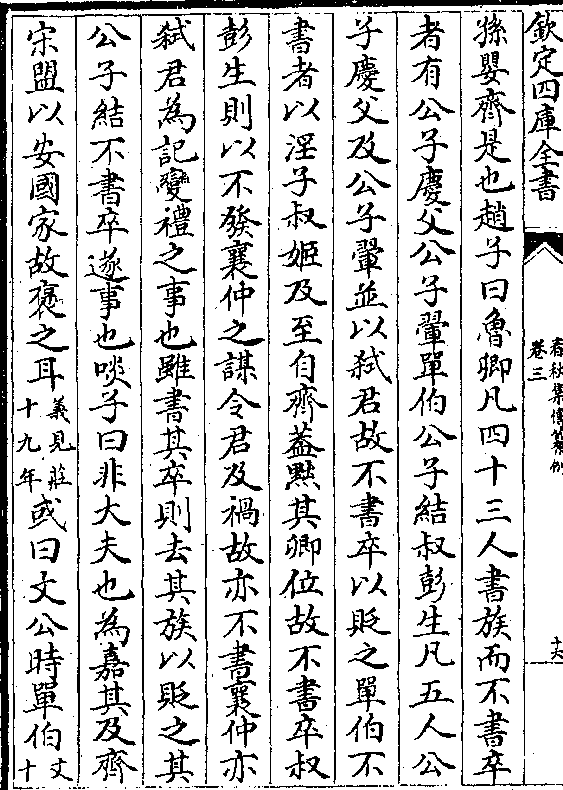 欽定四庫全書
春秋集傳纂例
卷三
十六
孫嬰齊是也趙子曰魯卿凡四十三人書族而不書卒
者有公子慶父公子翬單伯公子結叔彭生凡五人公
子慶父及公子翬並以弑君故不書卒以貶之單伯不
書者以淫子叔姬及至自齊蓋黜其卿位故不書卒叔
彭生則以不發襄仲之謀令君及禍故亦不書襄仲亦
弑君為記變禮之事也雖書其卒則去其族以貶之其
公子結不書卒遂事也啖子曰非大夫也為嘉其及齊
宋盟以安國家故褒之耳義見莊十九年或曰文公時單伯文十